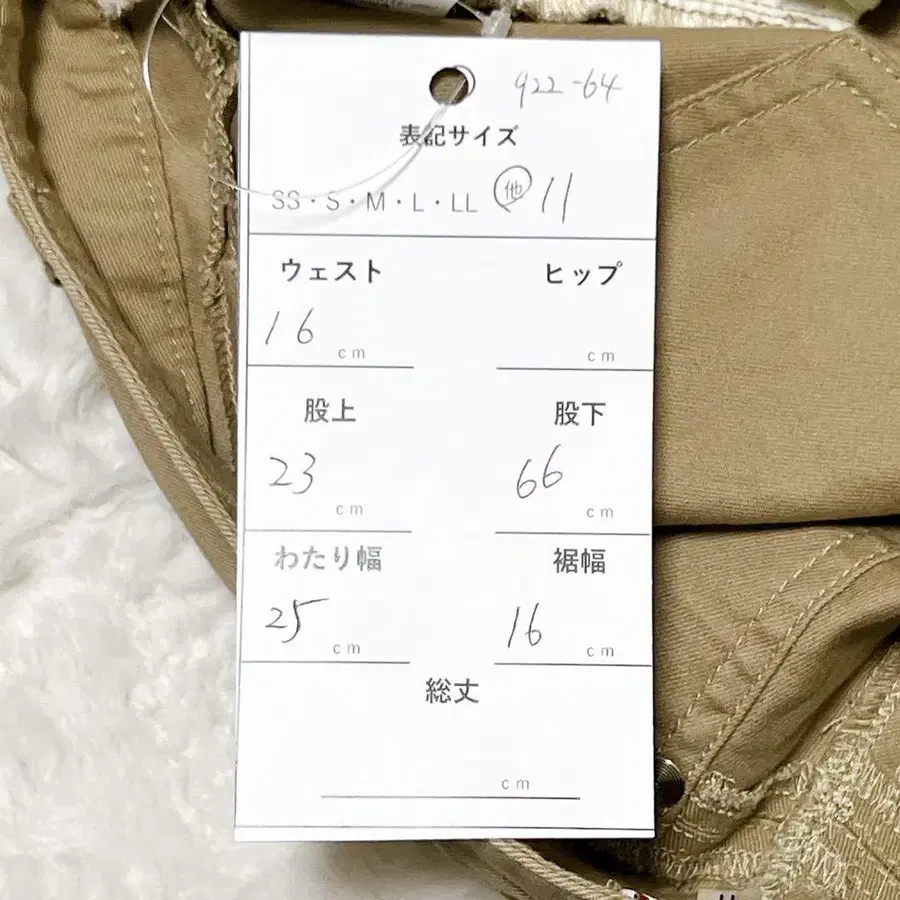 922-64
表記サイズ
SS・S・M・L・LL 他 11
ウェスト ヒップ
16 cm cm
股上 股下
23 cm 66 cm
わたり幅 裾幅
25 cm 16 cm
総丈
cm